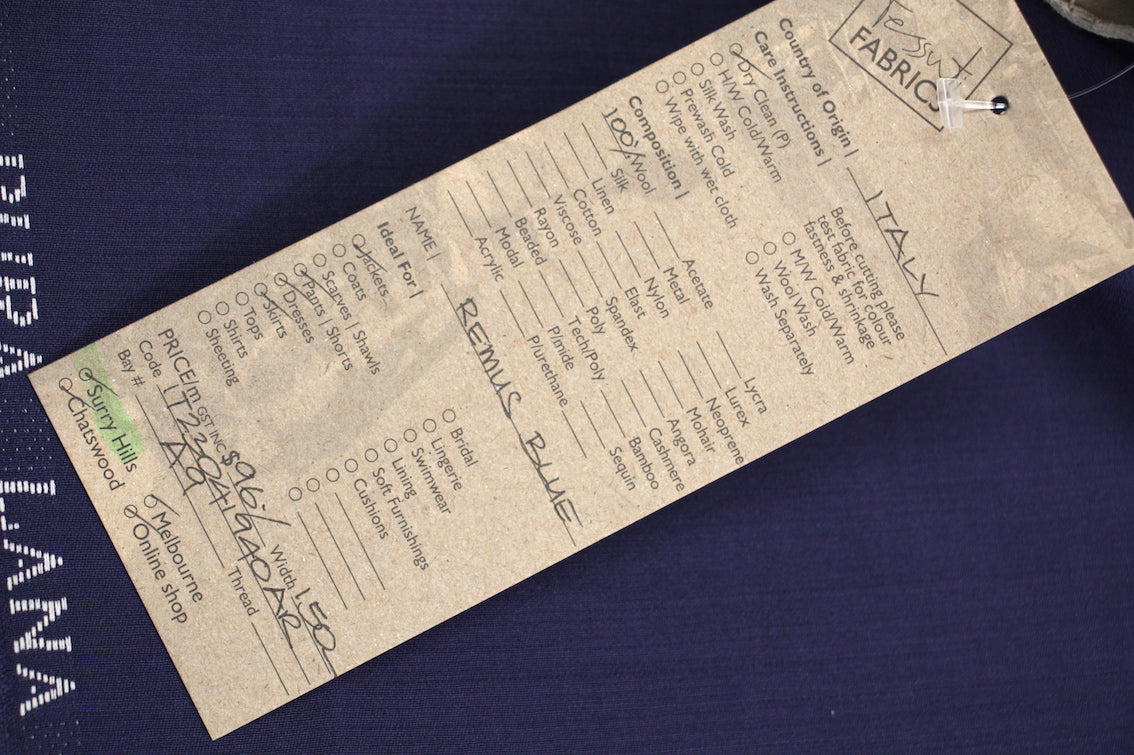 Tessuti
FABRICS
Country of Origin | ITALY
Care Instructions |
Dry Clean (P)
H/W Cold/Warm
Silk Wash
Prewash Cold
Wipe with wet cloth
Before cutting please
test fabric for colour
fastness & shrinkage
M/W Cold/Warm
Wool Wash
Wash Separately
Composition |
100% Wool
Silk
Linen
Cotton
Viscose
Rayon
Beaded
Modal
Acrylic
Acetate
Metal
Nylon
Elast
Spandex
Poly
Tech/Poly
P/mide
P/urethane
Lycra
Lurex
Neoprene
Mohair
Angora
Cashmere
Bamboo
Sequin
NAME | REMUS BLUE
Ideal For |
Jackets
Coats
Scarves | Shawls
Pants | Shorts
Dresses
Skirts
Tops
Shirts
Sheeting
Bridal
Lingerie
Swimwear
Lining
Soft Furnishings
Cushions
PRICE/m GST INC $96./ Width 150
Code
Bay # A9 Thread
Surry Hills
Chatswood
Melbourne
Online shop
PURA LANA